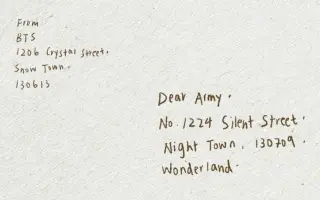 From
BTS
1206 Crystal Street,
Snow Town.
130613
Dear Army.
No. 1224 Silent Street.
Night Town. 130709.
Wonderland.